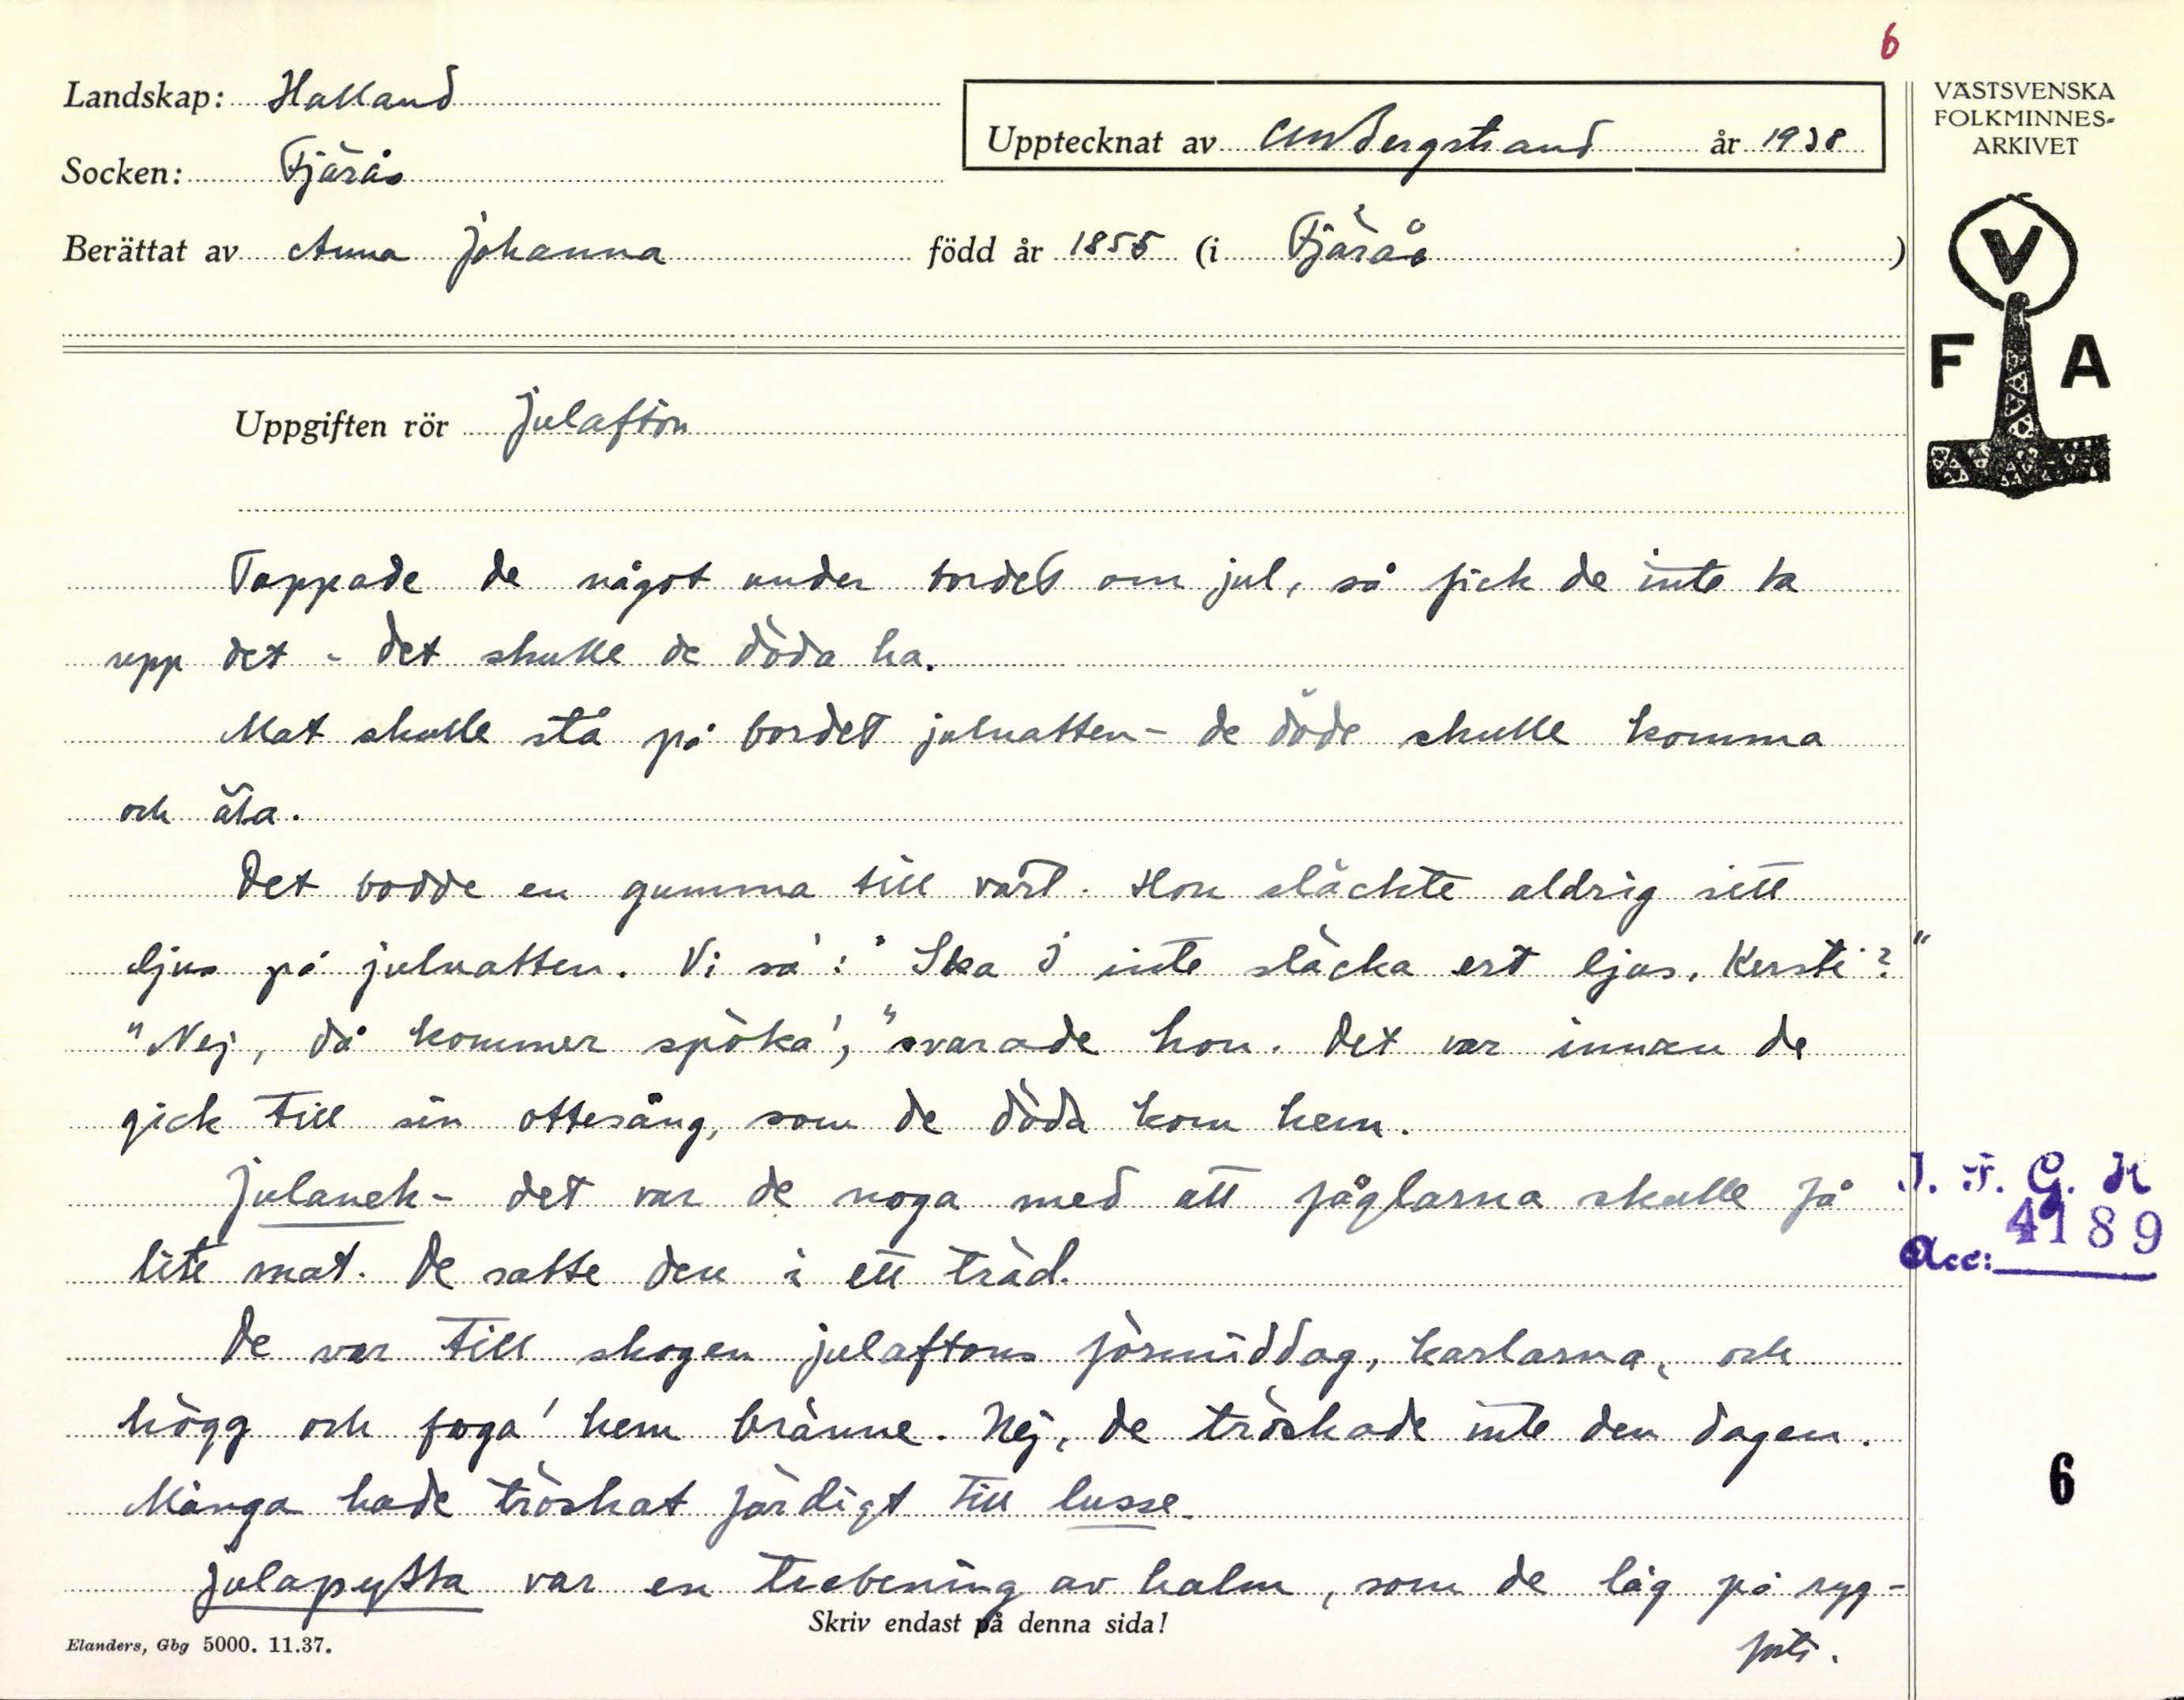 6
Landskap: Halland
Socken: Fjärås
Upptecknat av CM Bergstrand år 1938
Berättat av Anna Johanna född år 1855 (i Fjärås )
VÄSTSVENSKA
FOLKMINNES-
ARKIVET
V
F A
Uppgiften rör Julafton
Tappade de något under bordet om jul, så fick de inte ta
upp det - det skulle de döda ha.
Mat skulle stå på bordet julnatten - de döde skulle komma
och äta.
Det bodde en gumma till vårt. Hon släckte aldrig sitt
ljus på julnatten. Vi sa': "Ska I inte släcka ert ljus, Kersti?"
"Nej, då kommer spöka'," svarade hon. Det var innan de
gick till sin ottesång, som de döda kom hem.
Julanek - det var de noga med att fåglarna skulle få
lite mat. De satte den i ett träd.
De var till skogen julaftons förmiddag, karlarna, och
högg och foga' hem bränne. Nej, de tröskade inte den dagen.
Många hade tröskat färdigt till lusse.
Julapytta var en trebening av halm, som de låg på ryg-
forts.
I. F. G. H
Acc: 4189
6
Skriv endast på denna sida!
Elanders, Gbg 5000. 11.37.